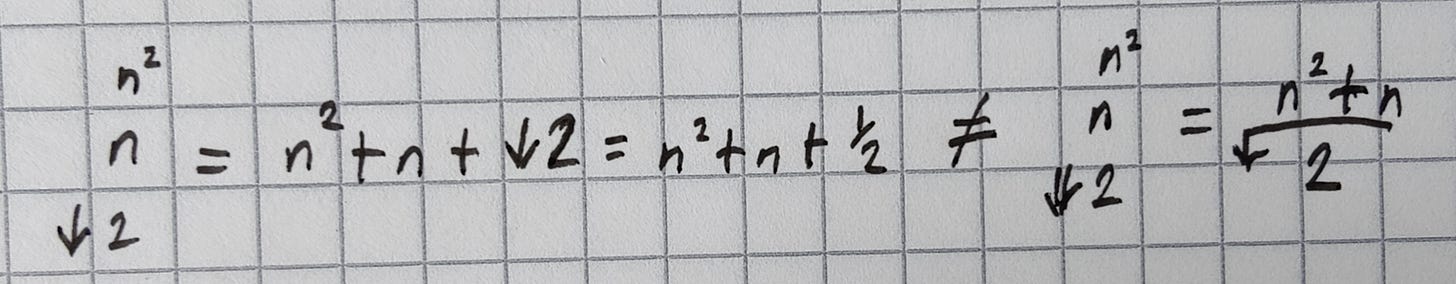 n²
n
↓2
= n² + n + ↓2 = n² + n + ½ ≠
n²
n
⇓2
=
n² + n
2